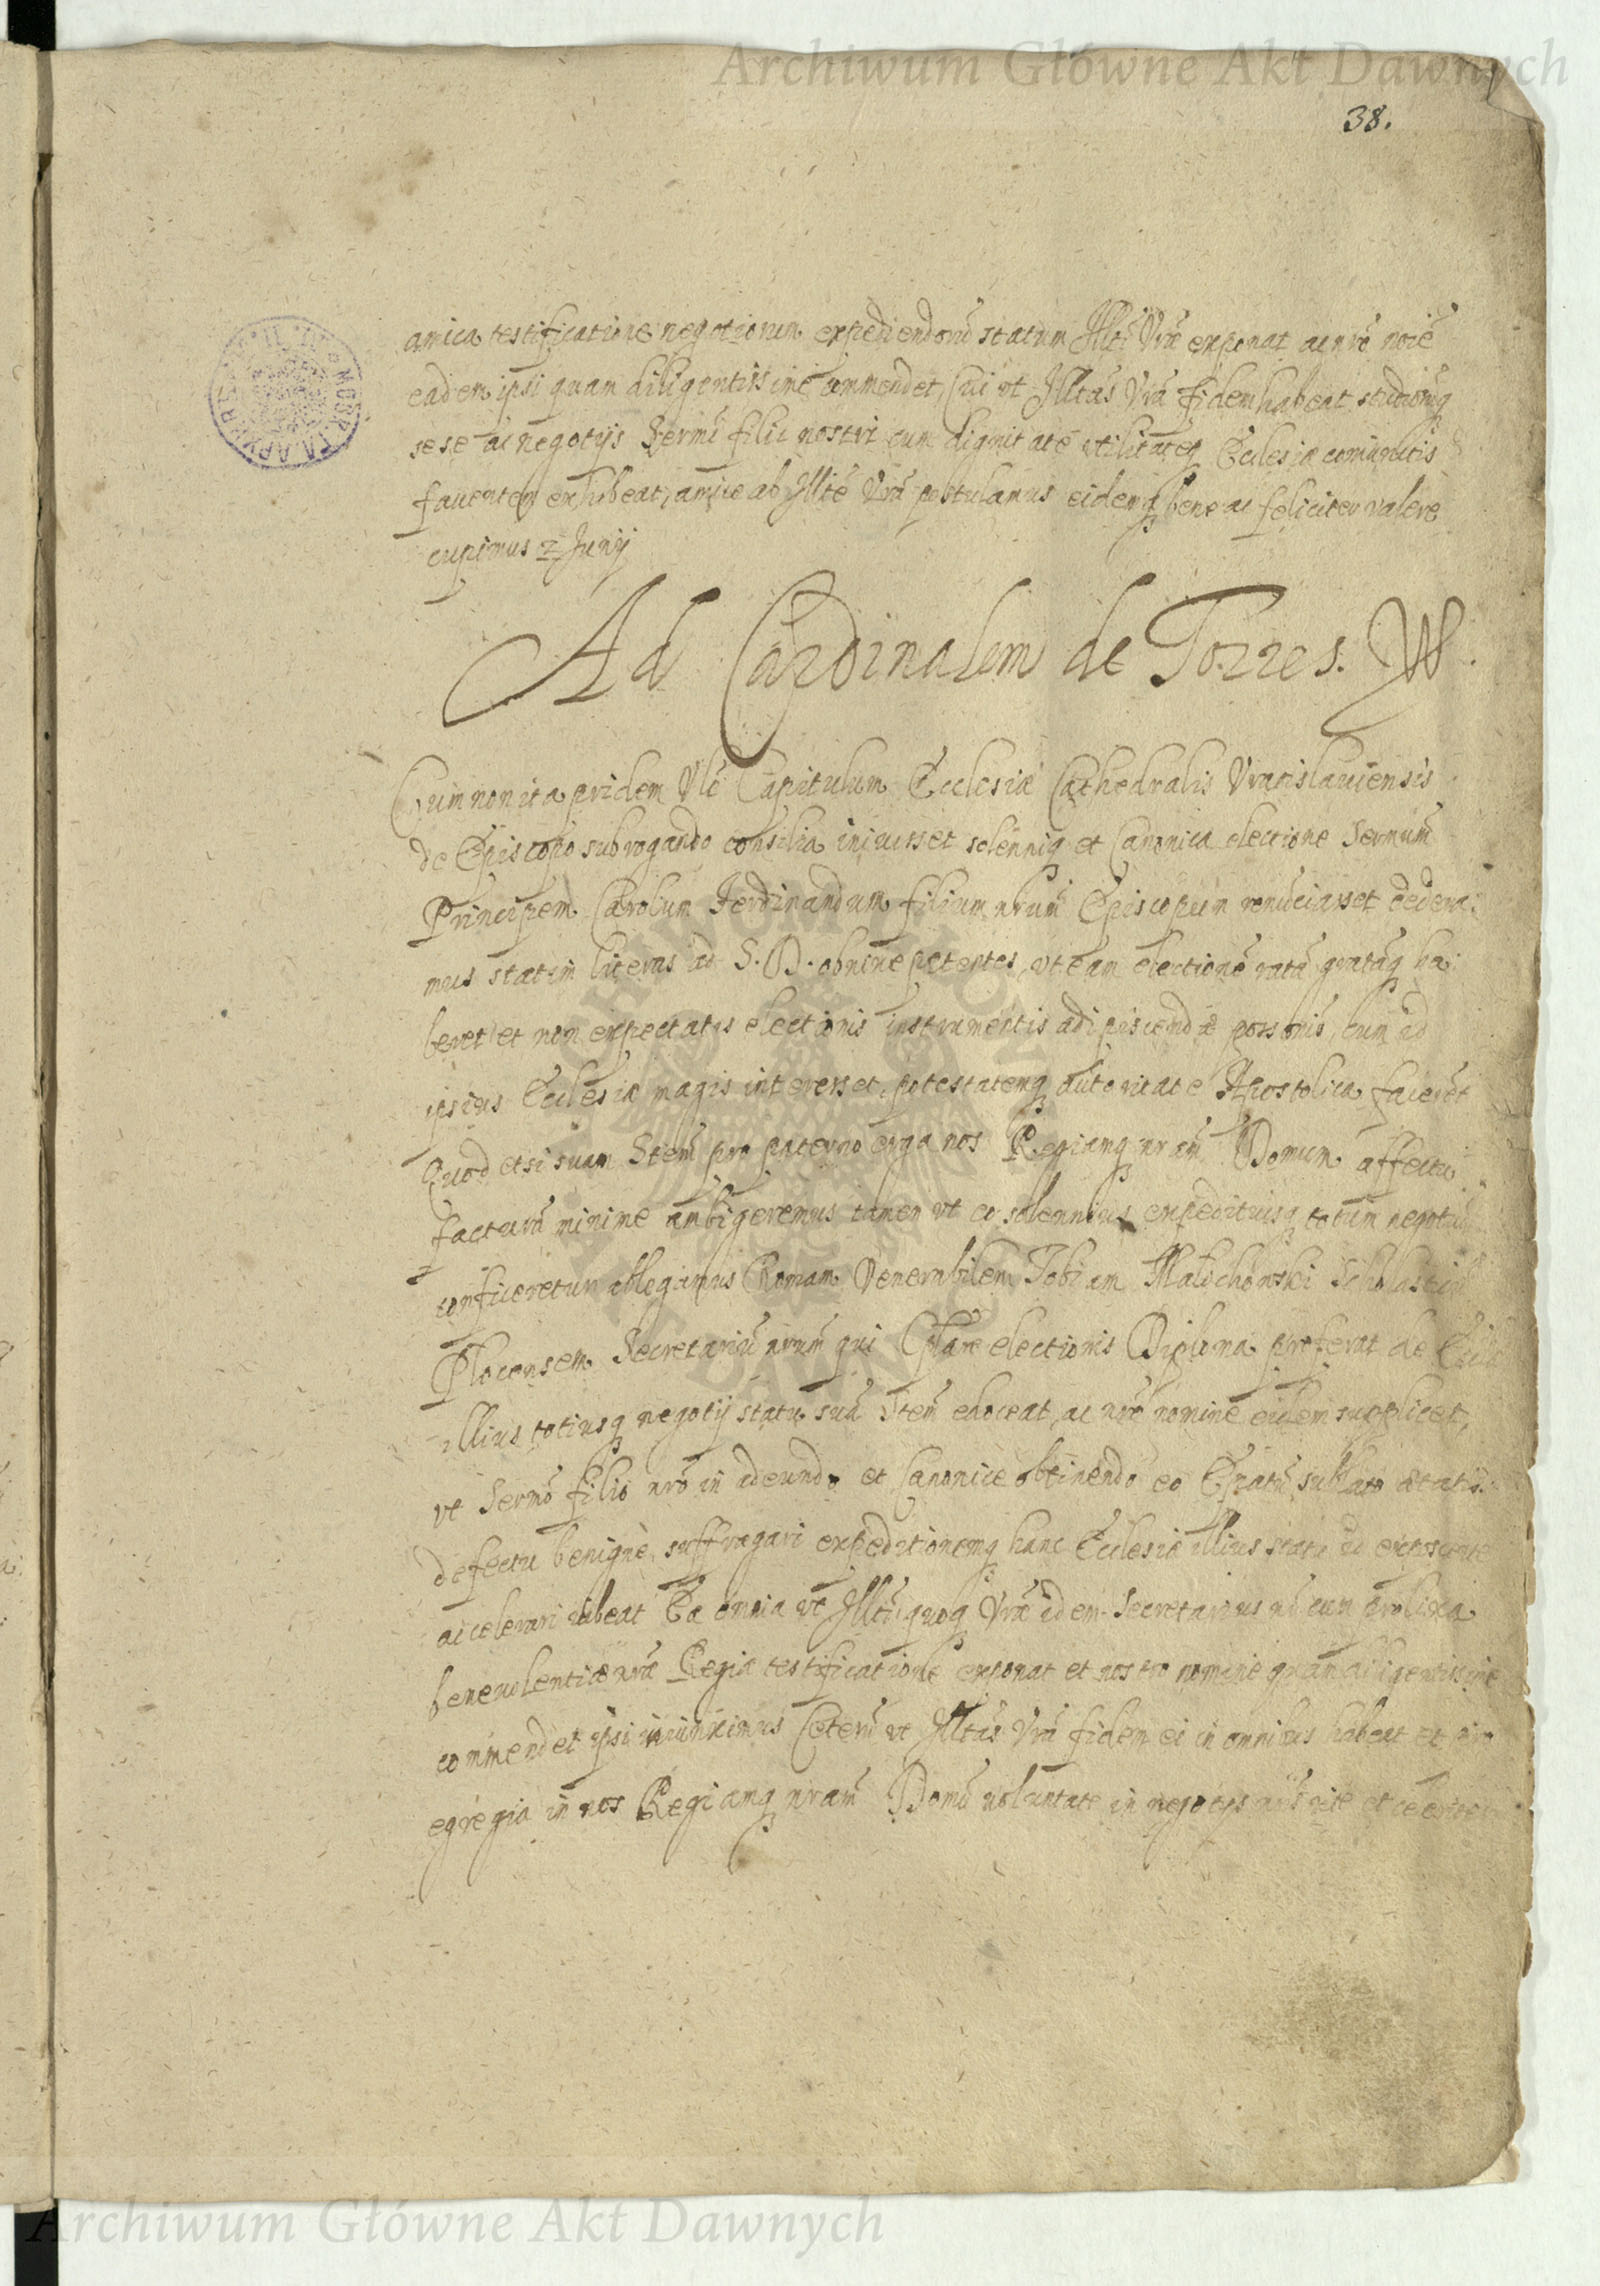 Archiwum Główne Akt Dawnych
38.
amica testificatione negotiorum expediendorū statum Illti Vrae exponat ac nro noīe
eadem ipsi quam diligentissime commendet, Cui ut Illtas Vra fidem habeat studiumq
sese ac negotijs Sermi filii nostri cum dignitate utilitateq Ecclesiae coniunctis
faventem exhibeat, amice ab Illte Vra postulamus eidemq bene ac feliciter valere
cupimus 2 Junij
Ad Cardinalem de Torres.
Cum non ita pridem Vle Capitulum Ecclesiae Cathedralis Vratislaviensis
de Episcopo subrogando consilia inivisset solenniq et Canonica electione Sermum
Principem Carolum Ferdinandum filium nrum Episcopum renuciasset dedera:
mus statim literas ad S. D. obnixe petentes, ut eam electionē ratā gratāq ha:
beret et non expectatis electionis instrumentis adipiscendae possonis, cum id
ipsius Ecclesiae magis interesset, potestatemq autoritate Apostolica faceret
Quod etsi suam Stem pro paterno erga nos Regiamq nram Domum affectu
facturā minime ambigeremus tamen ut eo solennius expeditiusq totum negotiū
conficeretur ablegamus Romam Venerabilem Tobiam Malichowski Scholasticū
Plocensem Secretariū nrum qui Cplare electionis Diploma preferat de
illius totiusq negotij statu suā Stem edoceat, ac nro nomine eidem supplicet,
ut Sermo filio nro in adeundo et Canonice obtinendo eo Epatu sublato aetatis
defectu benignè suffragari expeditionemq hanc Ecclesiae illius statu id exposcente
accelerari iubeat Ea omnia ut Illti quoq Vrae idem Secretarius nr cum prolixa
benevolentiae nrae Regiae testificatione exponat et nostro nomine quam diligentissime
commendet ipsi iniunximus Ceterū ut Illtas Vra fidem ei in omnibus habeat et pro
egregia in nos Regiamq nram Domū voluntate in negotijs nris rite et
Archiwum Główne Akt Dawnych